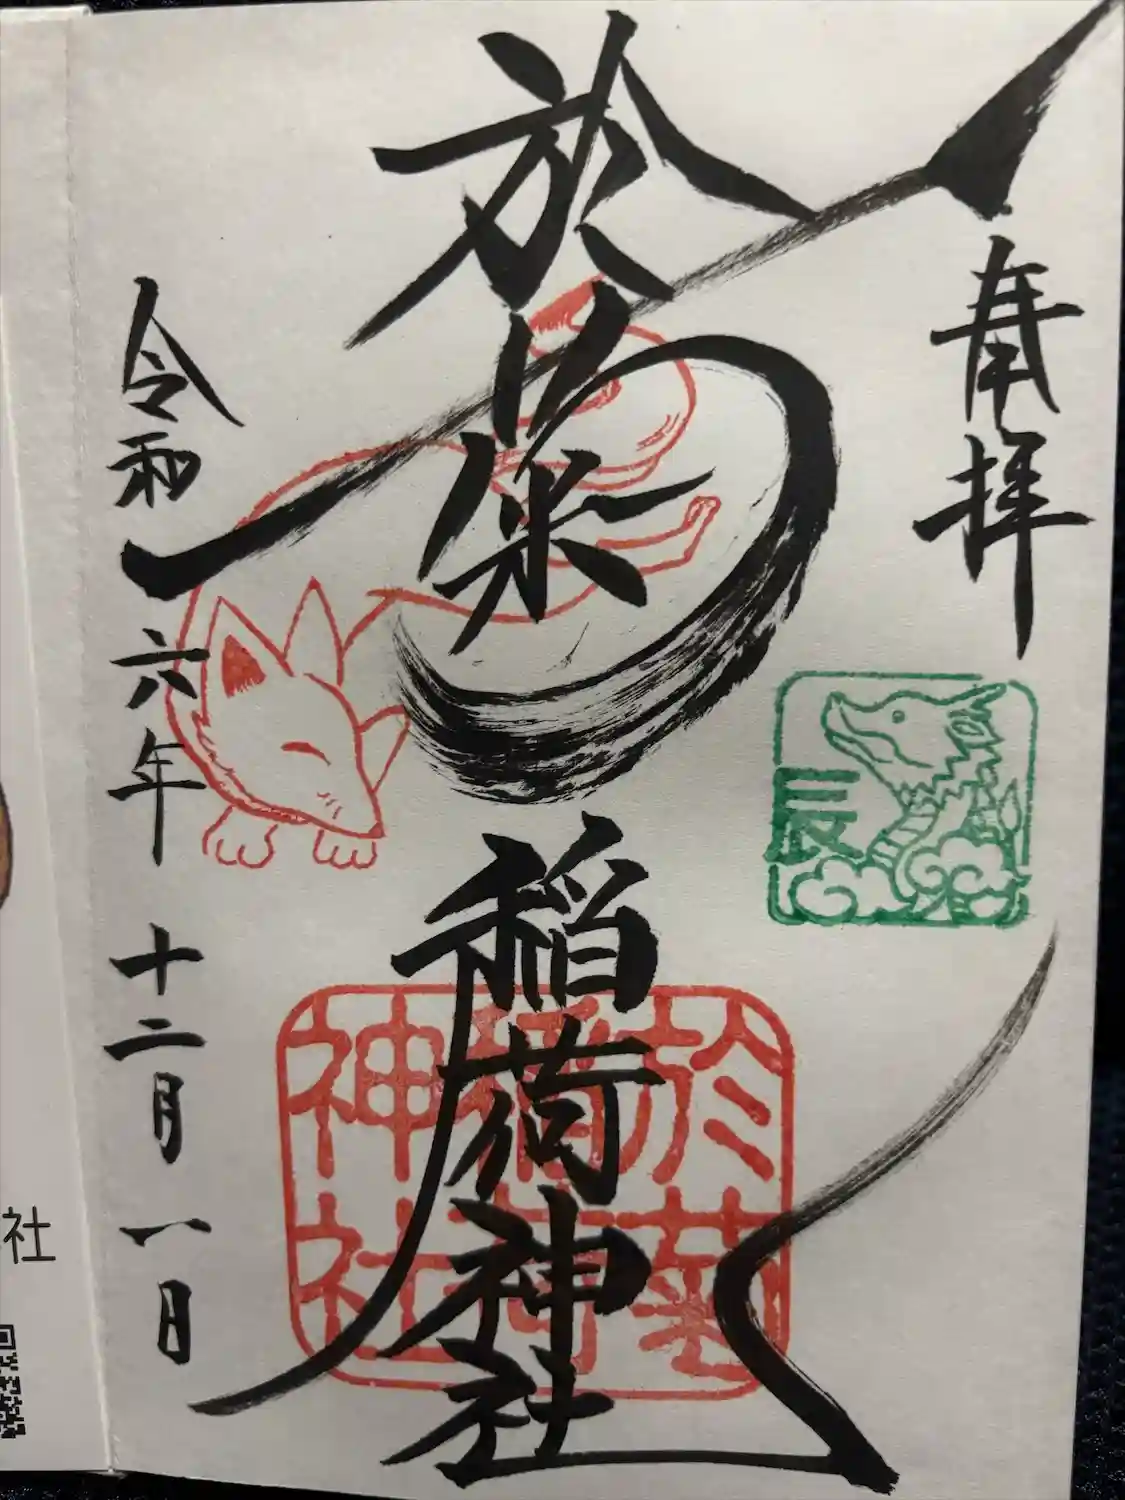 奉拝
辰
於菊稲荷神社
於菊
稲荷
神社
令和六年十二月一日
社